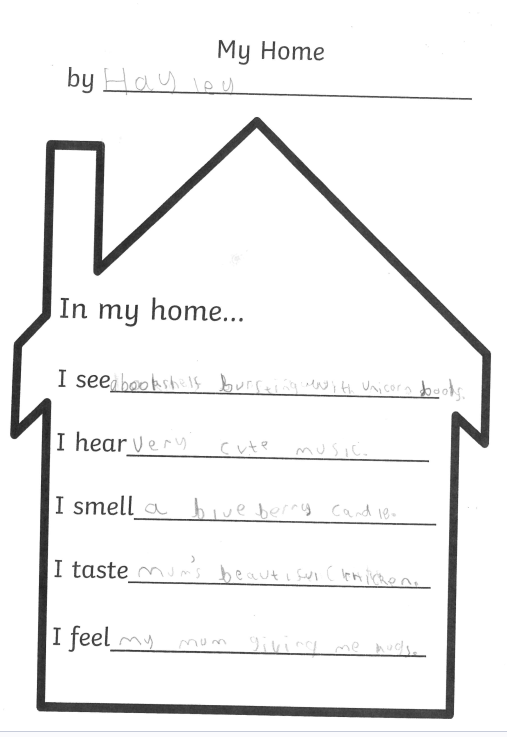 My Home
by Hayley
In my home...
I see a bookshelf bursting with unicorn books.
I hear very cute music.
I smell a blueberry candle.
I taste mum's beautiful
I feel my mom giving me hugs.